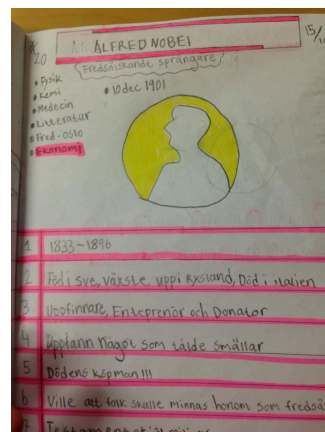 ALFRED NOBEL
15/
20
Fredsälskande sprängare
• Fysik
• Kemi
• Medecin
• Litteratur
• Fred - Oslo
• Ekonomi
• 10 dec 1901
1 1833-1896
2 Föd i sve, växste upp i Ryssland, Död i italien
3 Uppfinnare, Enteprenör och Donator
4 Uppfann något som tålde smällar
5 Dödens köpman!!!
6 Ville att folk skulle minnas honom som fredsä
7